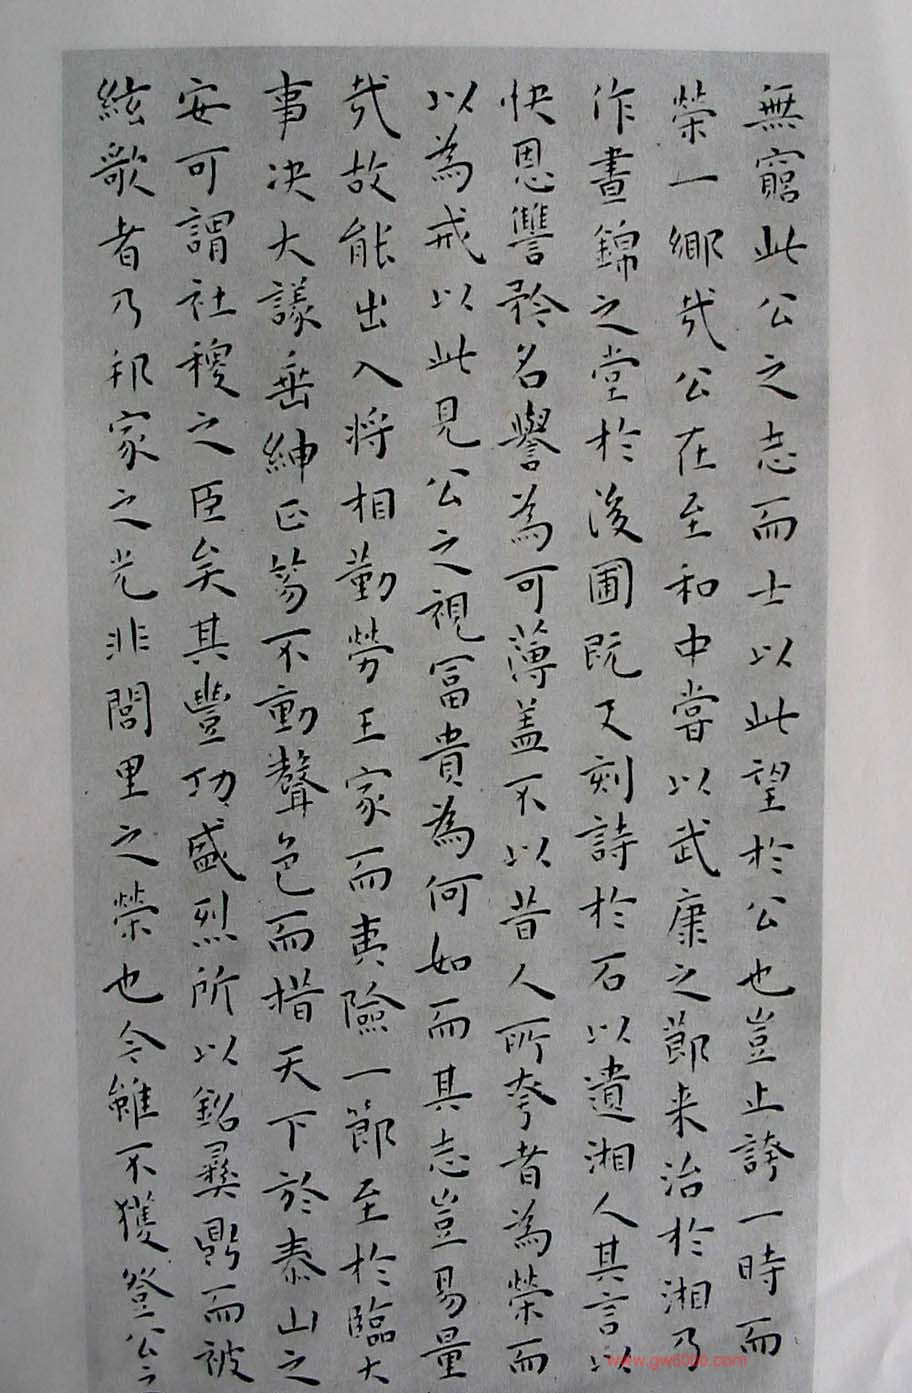 無窮此公之志而士以此望於公也豈止誇一時而
榮一鄉哉公在至和中嘗以武康之節来治於湘乃
作晝錦之堂於後圃既又刻詩於石以遺湘人其言以
快恩讐矜名譽為可薄盖不以昔人所夸者為榮而
以為戒以此見公之視富貴為何如而其志豈易量
哉故能出入将相勤勞王家而夷險一節至於臨大
事决大議垂紳正笏不動聲色而措天下於泰山之
安可謂社稷之臣矣其豐功盛烈所以銘彝鼎而被
絃歌者乃邦家之光非閭里之榮也余雖不獲登公之
www.gw8000.com